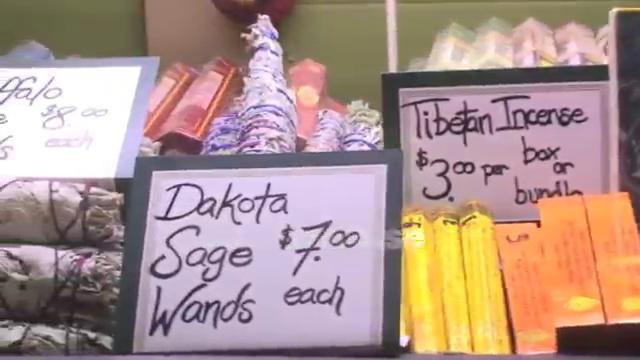 $8.00
each
Dakota
Sage $7.00
Wands each
Tibetan Incense
$3.00 per box
or
bundle